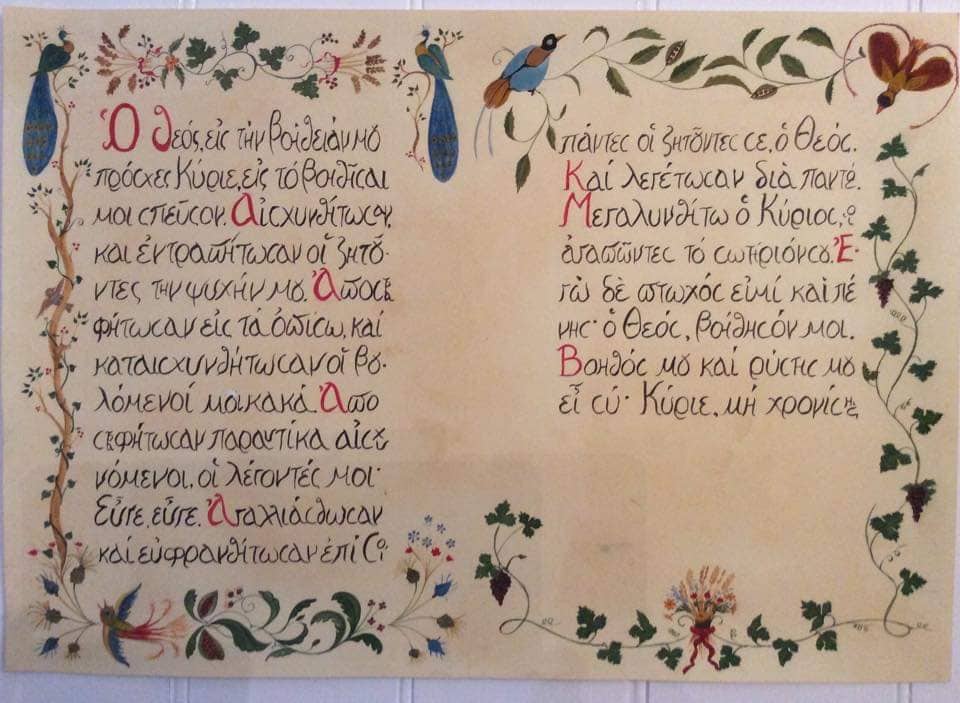 Ὁ Θεός, εἰς τὴν βοήθειάν μου
πρόσχες Κύριε, εἰς τό βοηθῆσαι
μοι σπεῦσον. Αἰσχυνθήτωσαν,
καί ἐντραπήτωσαν οἱ ζητοῦ-
ντες τὴν ψυχήν μου. Ἀποστρα
φήτωσαν εἰς τά ὀπίσω, καί
καταισχυνθήτωσαν οἱ βου-
λόμενοί μοι κακά. Ἀπο
στραφήτωσαν παραυτίκα αἰσχυ
νόμενοι, οἱ λέγοντές μοι·
Εὖγε, εὖγε. Ἀγαλλιάσθωσαν
καί εὐφρανθήτωσαν ἐπί Σοί
πάντες οἱ ζητοῦντες σε, ὁ Θεός.
Καί λεγέτωσαν διά παντός.
Μεγαλυνθήτω ὁ Κύριος, οἱ
ἀγαπῶντες τό σωτήριόν σου. Ἐ-
γώ δὲ πτωχός εἰμί καί πέ
νης· ὁ Θεός, βοήθησόν μοι.
Βοηθός μου καί ῥύστης μου
εἶ σύ· Κύριε, μή χρονίσῃς